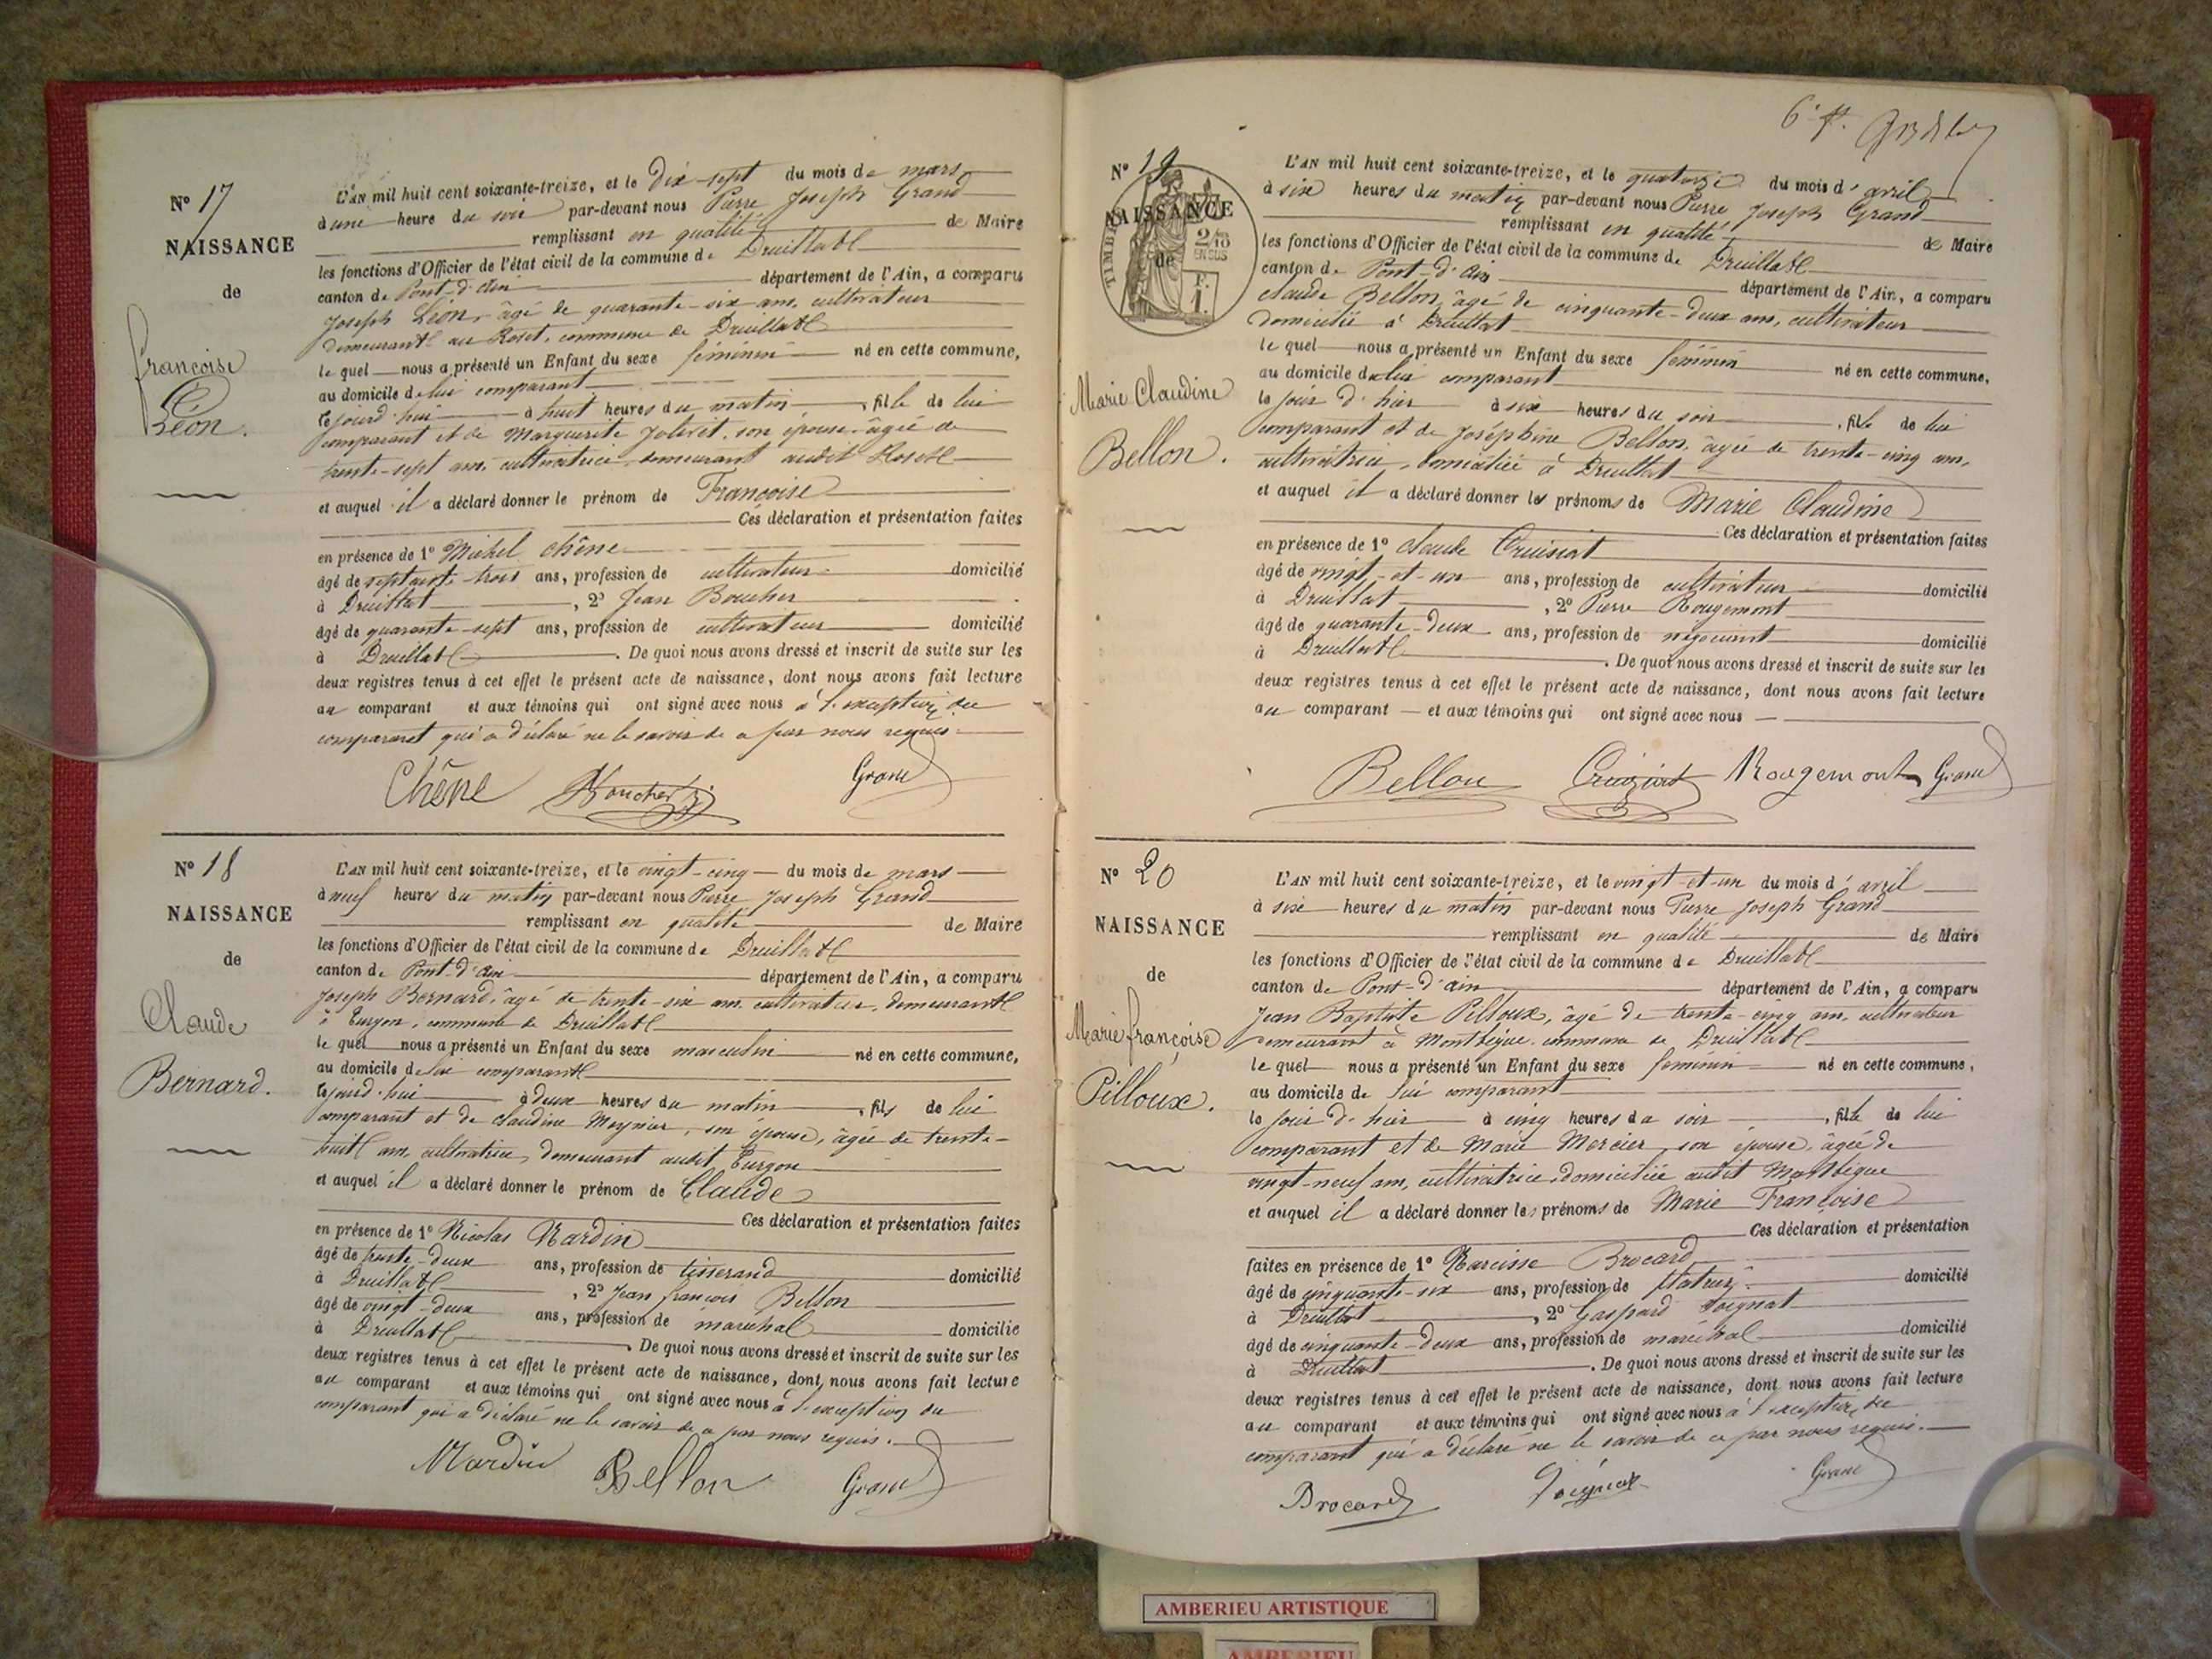 N° 17
NAISSANCE
de
françoise
Léon.
L'AN mil huit cent soixante-treize, et le dix-sept du mois de mars
à une heure du soir par-devant nous Pierre Joseph Grand
remplissant en qualité de Maire
les fonctions d'Officier de l'état civil de la commune de Druillat
canton de Pont-d'ain département de l'Ain, a comparu
Joseph Léon, âgé de quarante-six ans, cultivateur
demeurant au Roset, commune de Druillat
le quel nous a présenté un Enfant du sexe féminin né en cette commune,
au domicile de lui comparant
cejourd'hui à huit heures du matin, fille de lui
comparant et de Marguerite Jolivet, son épouse, âgée de
trente-sept ans, cultivatrice, demeurant audit Roset
et auquel il a déclaré donner le prénom de Françoise
Ces déclaration et présentation faites
en présence de 1° Michel Chêne
âgé de septante-trois ans, profession de cultivateur domicilié
à Druillat, 2° Jean Boucher
âgé de quarante-sept ans, profession de cultivateur domicilié
à Druillat. De quoi nous avons dressé et inscrit de suite sur les
deux registres tenus à cet effet le présent acte de naissance, dont nous avons fait lecture
au comparant et aux témoins qui ont signé avec nous à l'exception du
comparant qui a déclaré ne le savoir de ce par nous requis.
Chêne Boucher Grand
N° 18
NAISSANCE
de
Claude
Bernard.
L'AN mil huit cent soixante-treize, et le vingt-cinq du mois de mars
à neuf heures du matin par-devant nous Pierre Joseph Grand
remplissant en qualité de Maire
les fonctions d'Officier de l'état civil de la commune de Druillat
canton de Pont-d'ain département de l'Ain, a comparu
Joseph Bernard, âgé de trente-six ans, cultivateur, demeurant
à Turgon, commune de Druillat
le quel nous a présenté un Enfant du sexe masculin né en cette commune,
au domicile de lui comparant
cejourd'hui à deux heures du matin, fils de lui
comparant et de Claudine Meynier, son épouse, âgée de trente-
huit ans, cultivatrice, demeurant audit Turgon
et auquel il a déclaré donner le prénom de Claude
Ces déclaration et présentation faites
en présence de 1° Nicolas Nardin
âgé de trente-deux ans, profession de tisserand domicilié
à Druillat, 2° Jean françois Bellon
âgé de vingt-deux ans, profession de maréchal domicilié
à Druillat. De quoi nous avons dressé et inscrit de suite sur les
deux registres tenus à cet effet le présent acte de naissance, dont nous avons fait lecture
au comparant et aux témoins qui ont signé avec nous à l'exception du
comparant qui a déclaré ne le savoir de ce par nous requis.
Nardin Bellon Grand
6e f.
N° 19
NAISSANCE
de
TIMBRE
2/10
EN SUS
F.
1.
Marie Claudine
Bellon.
L'AN mil huit cent soixante-treize, et le quatorze du mois d'avril
à six heures du matin par-devant nous Pierre Joseph Grand
remplissant en qualité de Maire
les fonctions d'Officier de l'état civil de la commune de Druillat
canton de Pont-d'ain département de l'Ain, a comparu
Claude Bellon, âgé de cinquante-deux ans, cultivateur
domicilié à Druillat
le quel nous a présenté un Enfant du sexe féminin né en cette commune,
au domicile de lui comparant
le jour d'hier à six heures du soir, fille de lui
comparant et de Joséphine Bellon, âgée de trente-cinq ans,
cultivatrice, domiciliée à Druillat
et auquel il a déclaré donner les prénoms de Marie Claudine
Ces déclaration et présentation faites
en présence de 1° Claude Cruiziat
âgé de vingt-et-un ans, profession de cultivateur domicilié
à Druillat, 2° Pierre Rougemont
âgé de quarante-deux ans, profession de négociant domicilié
à Druillat. De quoi nous avons dressé et inscrit de suite sur les
deux registres tenus à cet effet le présent acte de naissance, dont nous avons fait lecture
au comparant et aux témoins qui ont signé avec nous
Bellon Cruiziat Rougemont Grand
N° 20
NAISSANCE
de
Marie françoise
Pilloux.
L'AN mil huit cent soixante-treize, et le vingt-et-un du mois d'avril
à six heures du matin par-devant nous Pierre Joseph Grand
remplissant en qualité de Maire
les fonctions d'Officier de l'état civil de la commune de Druillat
canton de Pont-d'ain département de l'Ain, a comparu
Jean Baptiste Pilloux, âgé de trente-cinq ans, cultivateur
demeurant à Montbègue, commune de Druillat
le quel nous a présenté un Enfant du sexe féminin né en cette commune,
au domicile de lui comparant
le jour d'hier à cinq heures du soir, fille de lui
comparant et de Marie Mercier, son épouse, âgée de
vingt-neuf ans, cultivatrice, domiciliée audit Montbègue
et auquel il a déclaré donner les prénoms de Marie Françoise
Ces déclaration et présentation
faites en présence de 1° Narcisse Brocard
âgé de cinquante-six ans, profession de domicilié
à Druillat, 2° Gaspard Soignat
âgé de cinquante-deux ans, profession de maréchal domicilié
à Druillat. De quoi nous avons dressé et inscrit de suite sur les
deux registres tenus à cet effet le présent acte de naissance, dont nous avons fait lecture
au comparant et aux témoins qui ont signé avec nous à l'exception du
comparant qui a déclaré ne le savoir de ce par nous requis.
Brocard Soignat Grand
AMBERIEU ARTISTIQUE
AMBERIEU